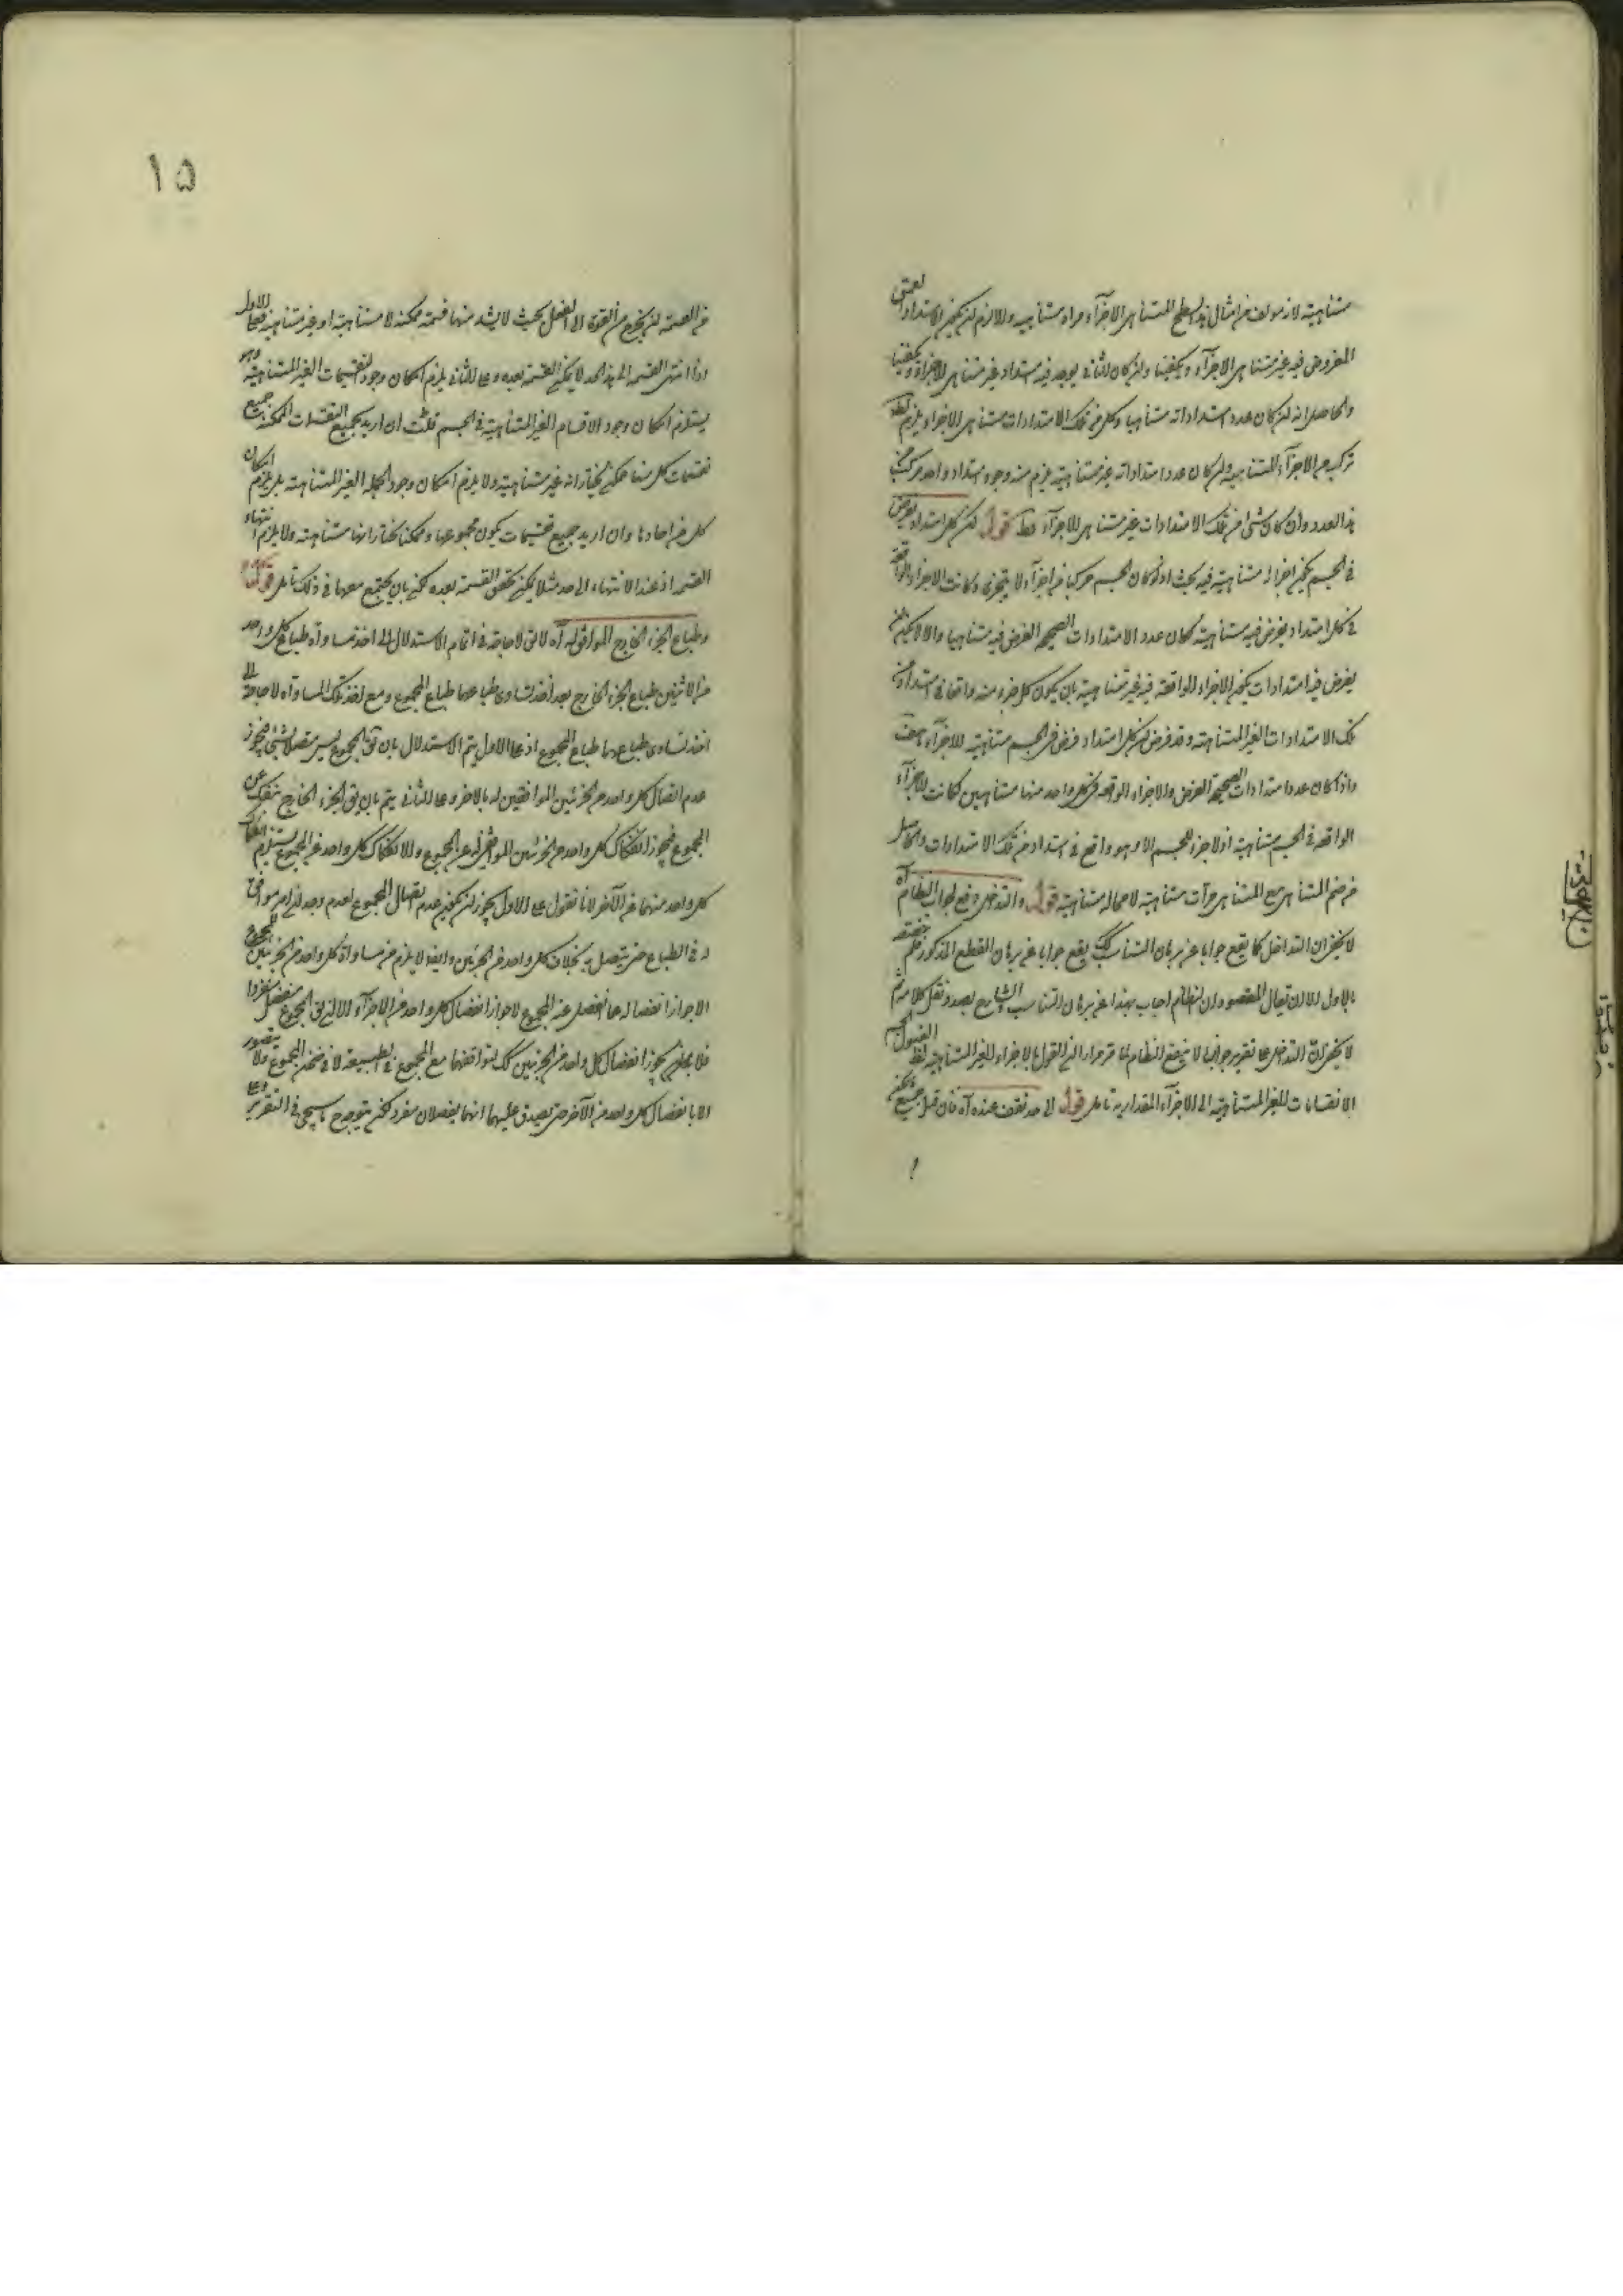 متناهية لانه مولف من امثال هذا السطح المتناهى الاجزاء مراة متناهية والا لزم ان يكون الامتداد العمقى
المفروض فيه غير متناهى الاجزاء ويكفينا وان كان الثانى يوجد فيه امتداد غير متناهى الاجزاء ويكفينا
والحاصل انه ان كان عدد امتداداته متناهيا وكل من تلك الامتدادات متناهى الاجزاء يلزم
تركبه من الاجزاء المتناهية وان كان عدد امتداداته غير متناهية يلزم منه وجود امتداد واحد مركب من
هذا العدد وان كان شئ من تلك الامتدادات غير متناهى الاجزاء فظ قوله لكن كل امتداد يفرض
فى الجسم يكون اجزائه متناهية فيه بحيث اذ لو كان الجسم مركبا من اجزاء لا يتجزى وكانت الاجزاء الواقعة
فى كل امتداد يفرض فيه متناهية لكان عدد الامتدادات الصحيحة الفرض فيه متناهيا والا لامكن ان
يفرض فيه امتدادات يكون الاجزاء الواقعة فيه غير متناهية بان يكون كل جزء منه واقعا فى امتداد من
تلك الامتدادات الغير المتناهية وقد فرض ان كل امتداد فرض فى الجسم متناهية الاجزاء هف
واذا كان عدد امتدادات الصحيحة الفرض والاجزاء الواقعة فى كل واحد منها متناهيين كانت الاجزاء
الواقعة فى الجسم متناهية اذ لا جزء للجسم الا وهو واقع فى امتداد من تلك الامتدادات والحاصل
من ضم المتناهى مع المتناهى مرات متناهية لا محالة متناهية قوله والتداخل وقع لجواب النظام آه
لا يخفى ان التداخل كما يقع جوابا عن برهان التناسب كك يقع جوابا عن برهان القطع المذكور
بالاول الا ان يقال المقصود ان النظام اجاب بهذا عن برهان التناسب الشارح بصدد نقل كلامه ثم
لا يخفى ان التداخل على تقرير جوابه لا ينفع النظام لما قرر مراد ان القول بالاجزاء الغير المتناهية
الانقسامات الغير المتناهية الى الاجزاء المقدارية تامل قوله الى حد تقف عنده آه فان قيل جميع
١٥
من القسمة ان يخرج من القوة الى الفعل بحيث لا يشذ منها قسمة ممكنة لا متناهية او غير متناهية فعلى الاول
اذا انتهى القسمة الى هذا الحد لا يمكن القسمة بعده وعلى الثانى يلزم امكان وجود التقسيمات الغير المتناهية وهو
يستلزم امكان وجود الاقسام الغير المتناهية فى الجسم قلت ان اريد بجميع التقسيمات الممكنة جميع
تقسيمات كل منها ممكن نختار انه غير متناهية ولا يلزم امكان وجود الجملة الغير المتناهية بل يلزم امكان
كل من احادها وان اريد جميع تقسيمات يكون مجموعها ممكنا نختار انها متناهية ولا يلزم انتهاء
القسمة اذ عند الانتهاء الى حد مثلا يمكن تحقق القسمة بعده لكن بان يجتمع معها فى ذلك تامل قوله
وطباع الجزء الخارج الموافق له آه لا يق لا حاجة فى اتمام الاستدلال الى اخذ مساواة طباع كل واحد
من الاثنين طباع الجزء الخارج بعد اخذ تساوى طباعهما طباع المجموع ومع اخذ تلك المساواة لا حاجة الى
اخذ تساوى طباعهما طباع المجموع اذ على الاول يتم الاستدلال بان يق المجموع ليس متصلا بشئ فيجوز
عدم اتصال كل واحد من الجزئين الموافقين له بالاخر وعلى الثانى يتم بان يق الجزء الخارج منفك عن
المجموع فيجوز انفكاك كل واحد من الجزئين الموافق له عن المجموع والانفكاك كل واحد عن المجموع يستلزم انفكاك
كل واحد منهما عن الآخر لانا نقول على الاول يجوز ان يكون عدم اتصال المجموع لعدم وجد ان امر موافق
له فى الطباع حتى يتصل به بخلاف كل واحد من الجزئين وايضا لا يلزم من مساواة كل واحد من الجزئين للمجموع
الا جواز انفصاله عما انفصل عنه المجموع لا جواز انفصال كل واحد من الاجزاء الا ان يق المجموع منفصل منفردا
فلا بد ان يجوز انفصال كل واحد من الجزئين كك لتوافقهما مع المجموع فى الطبيعة لا فى ضمن المجموع ولا يتصور
الا بانفصال كل واحد من الآخر حتى يصدق عليهما انهما ينفصلان منفردا لكن يتوجه ما سيجئ فى التقرير